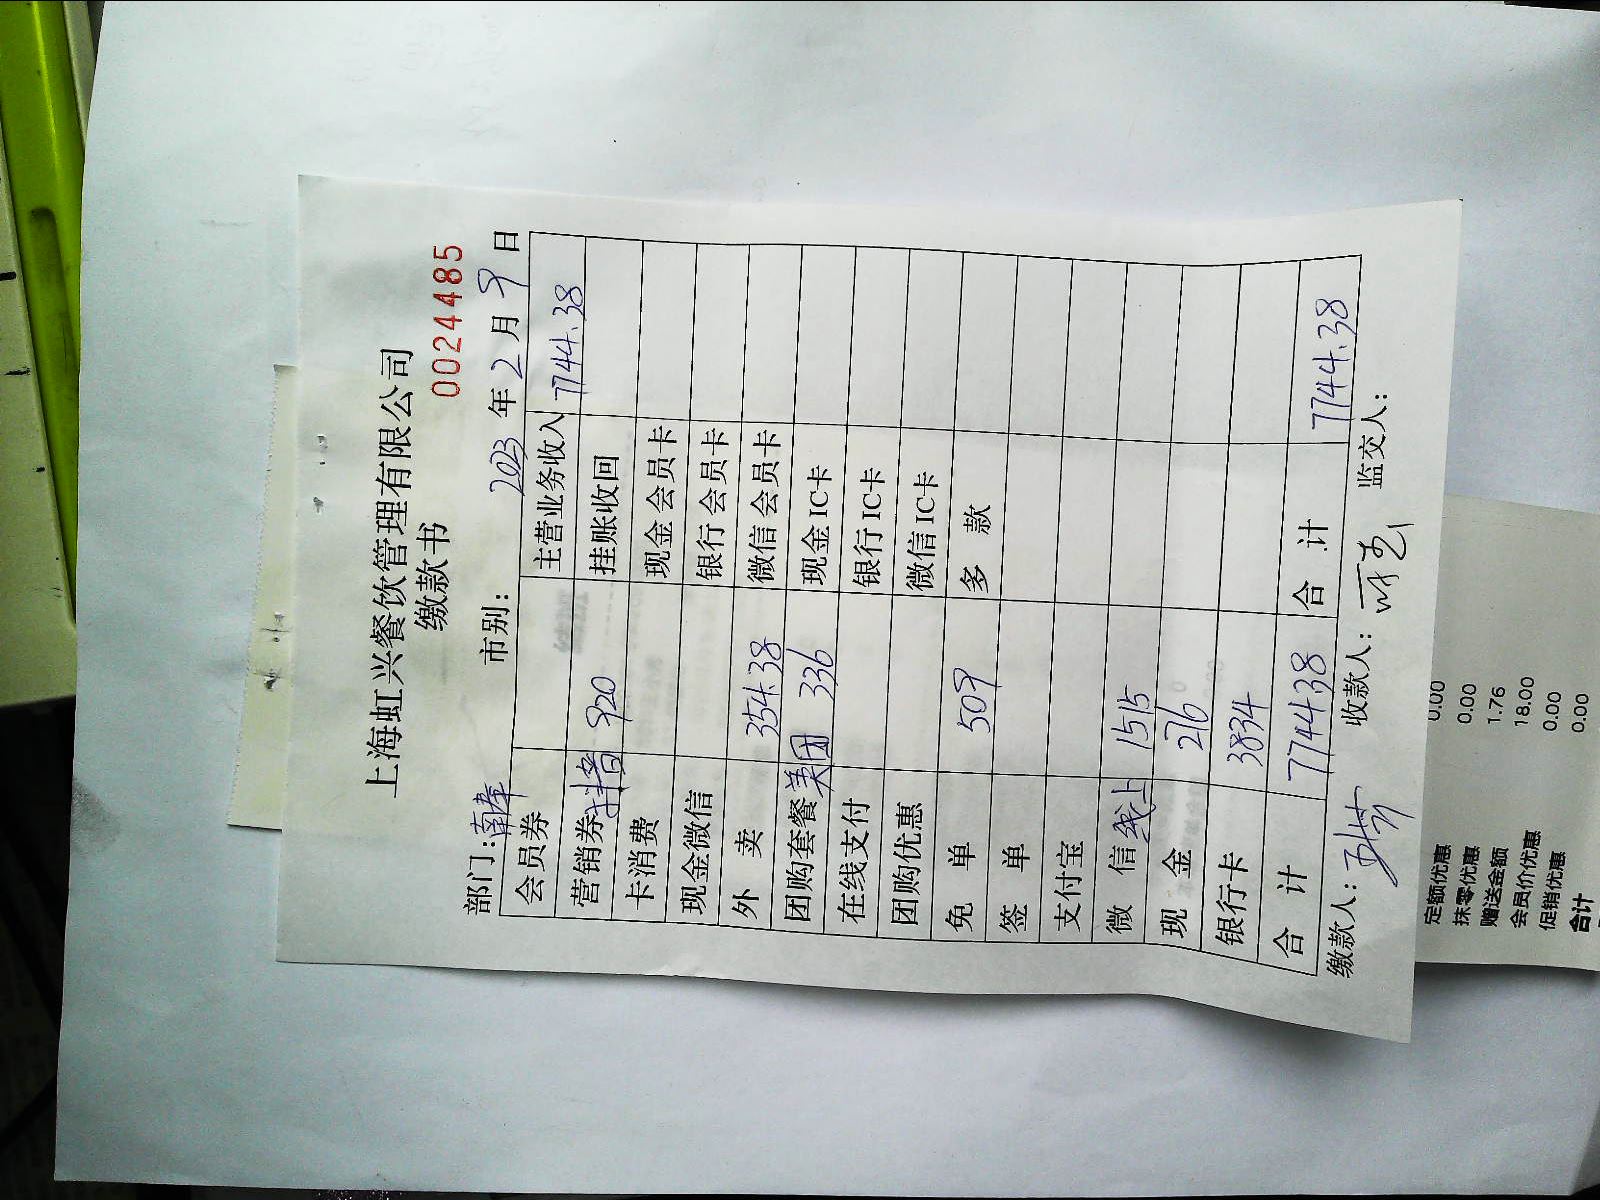 上海虹兴餐饮管理有限公司
缴款书
0024485
部门: 市别: 2023 年 2 月 9 日
会员券 主营业务收入 7744.38
营销券 920 挂账收回
卡消费 现金会员卡
现金微信 银行会员卡
外 卖 354.38 微信会员卡
团购套餐 美团 336 现金IC卡
在线支付 银行IC卡
团购优惠 微信IC卡
免 单 509 多 款
签 单
支付宝
微 信 线上 1515
现 金 276
银行卡 3834
合 计 7744.38 合 计 7744.38
缴款人: 收款人: 监交人:
定额优惠 0.00
抹零优惠 0.00
赠送金额 1.76
会员价优惠 18.00
促销优惠 0.00
合计 0.00